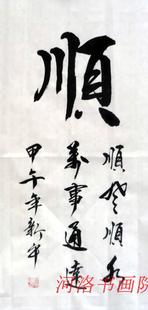 順
順風順水
萬事通達
甲午年新年
河洛书画院